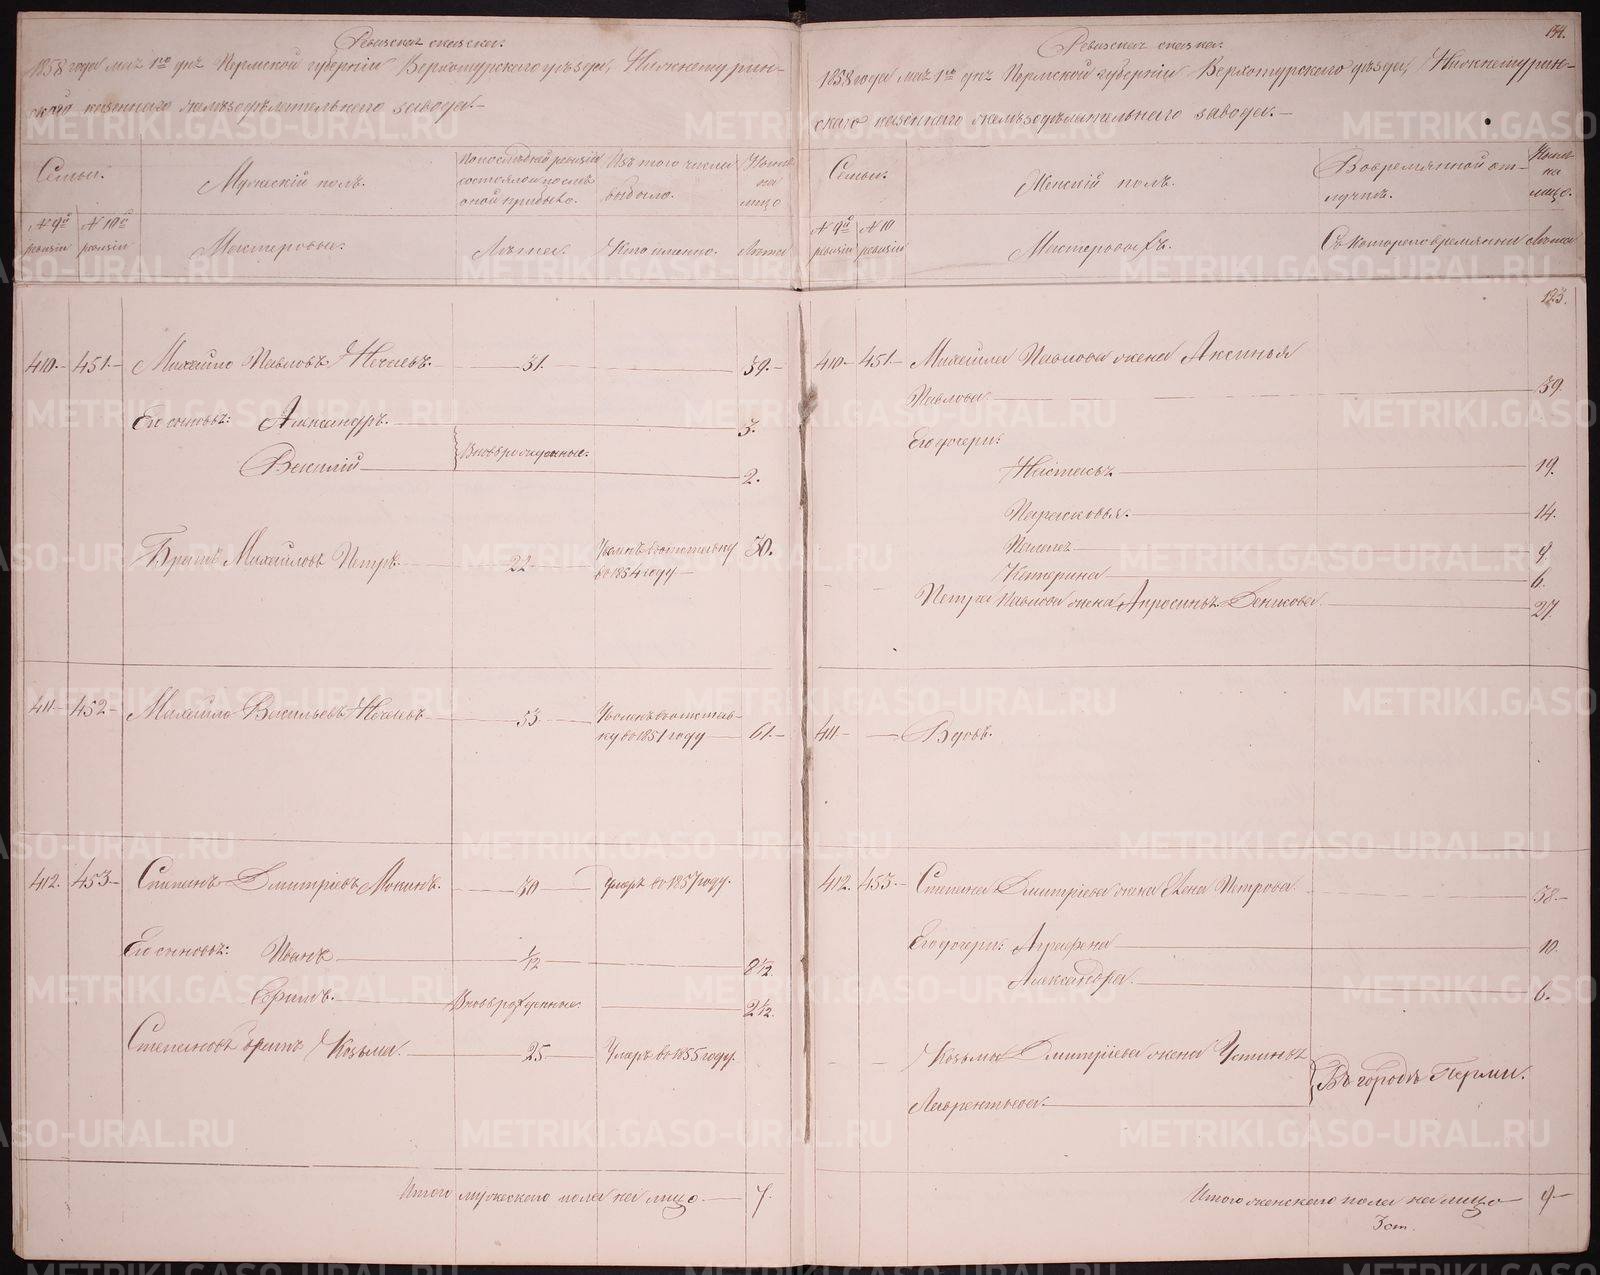 Ревизская сказка.
1858 года мая 1го дня Пермской губерніи Верхотурскаго уѣзда, Нижнетурин-
скаго казеннаго желѣзодѣлательнаго завода.—
Семьи.
Мужескій полъ.
По послѣдней ревизіи состояло и послѣ оной прибыло.
Изъ того числа выбыло.
Нынѣ на лицо
№ 9й ревизіи
№ 10й ревизіи
Мастеровые.
Лѣта.
Когда именно.
Лѣта
410.— 451.— Михайло Павловъ Нечаевъ. 31. 39.—
Его сыновья: Александръ. 3.
Вновьрожденные.
Василій 2.
Братъ Михайловъ Петръ. 22. Уволенъ въ отставку 30.
во 1854 году
411— 452— Михайло Васильевъ Нечаевъ 53 Уволенъ въ отстав-
ку во 1851 году 61.—
412. 453— Степанъ Дмитріевъ Мокинъ. 50 Умеръ во 1857 году.
Его сыновья: Иванъ 1/12 8 1/12.
Вновьрожденные. 2 1/12.
Степановъ братъ Козьма. 25 Умеръ во 1855 году.
Итого мужескаго пола на лицо.— 7.
134.
Ревизская сказка.
1858 года мая 1го дня Пермской губерніи Верхотурскаго уѣзда, Нижнетурин-
скаго казеннаго желѣзодѣлательнаго завода.—
Семьи.
Женскій полъ.
Во временной от-
лучкѣ.
Нынѣ на лицо.
№ 9й ревизіи
№ 10 ревизіи
Мастеровыхъ.
Съ котораго времяни
Лѣта
123.
410— 451.— Михайла Павлова жена Аксинья
Павлова 39.
Его дочери:
Настасья 19.
Парасковья. 14.
Пелагея 9.
Катерина 6.
Петра Павлова жена Апросинья Денисова 27.
411— — Вдовъ.
412. 453.— Степана Дмитріева жена Анна Петрова. 38.—
Его дочери: Аграфена 10.
Александра. 6.
Козьмы Дмитріева жена Устинья
Въ городѣ Перми.
Лаврентьева.
Итого женскаго пола на лицо 9—